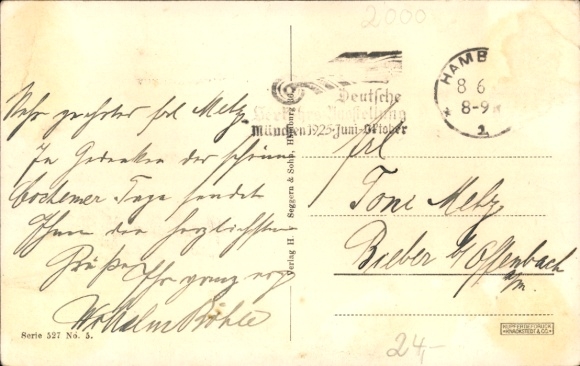 2000
HAMB
8 6
8-9
1
Deutsche
Verkehrs-Ausstellung
München 1925-Juni-Oktober
Sehr geehrtes frl Metz.
In Gedenken der schönen
Cochemer Tage sendet
Ihnen die herzlichsten
Grüße Ihr ganz erg
Wilhelm Röhle
Frl
Toni Metz
Bieber b/Offenbach
a/m.
Verlag H. Seggern & Sohn, Hamburg
Serie 527 No. 5.
24,-
KUPFERTIEFDRUCK
KNACKSTEDT & CO.